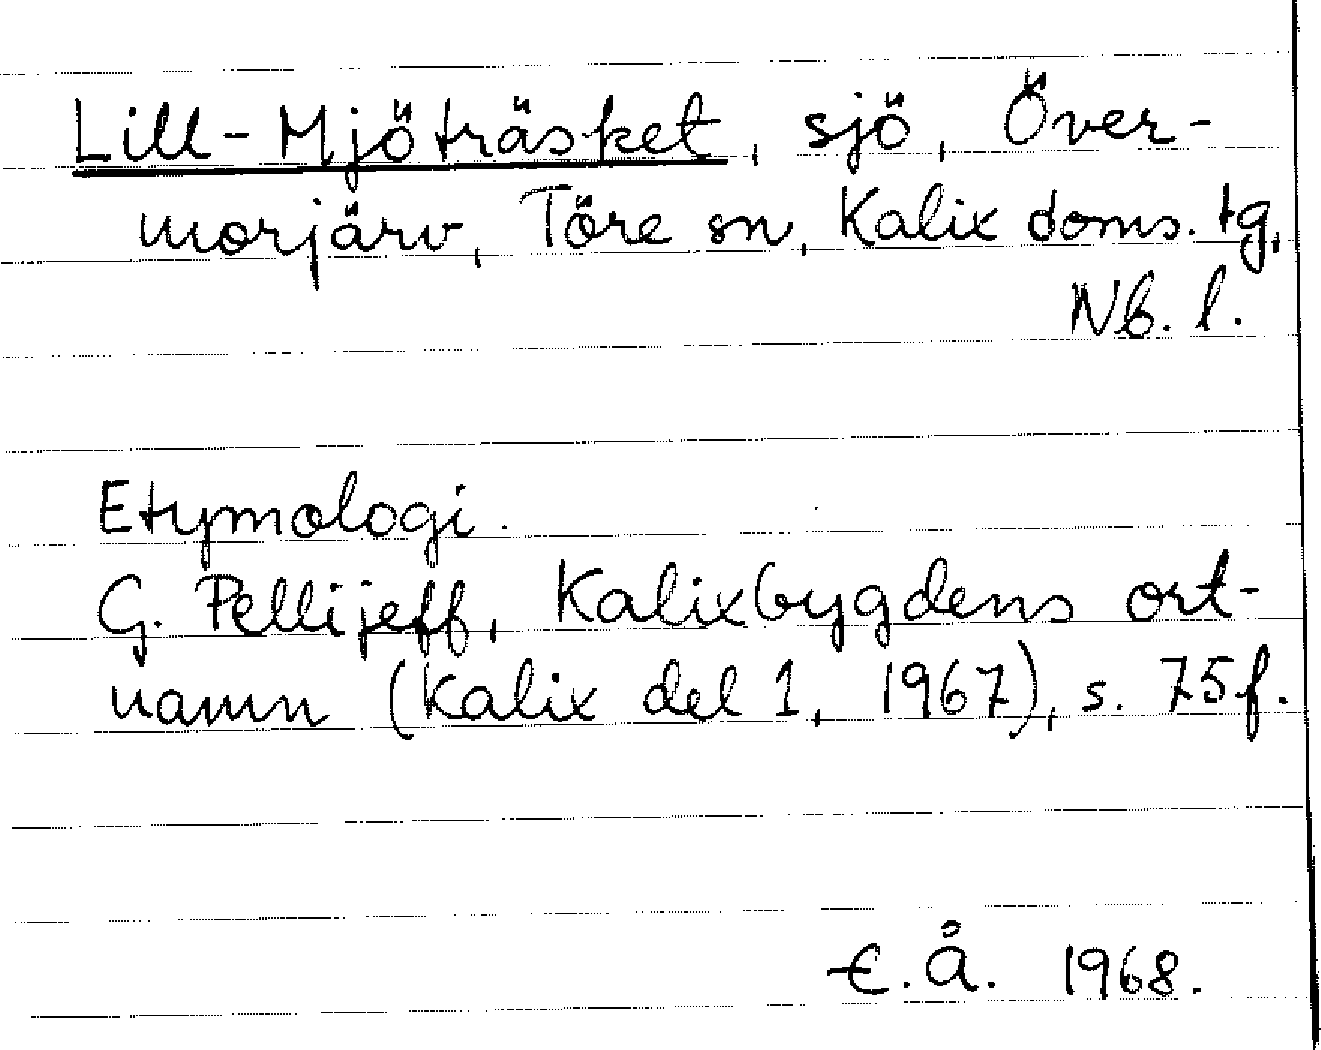 Lill-Mjöträsket, sjö, Över-
morjärv, Töre sn, Kalix doms. tg,
Nb. l.
Etymologi.
G. Pellijeff, Kalixbygdens ort-
namn (Kalix del 1, 1967), s. 75f.
E.Å. 1968.